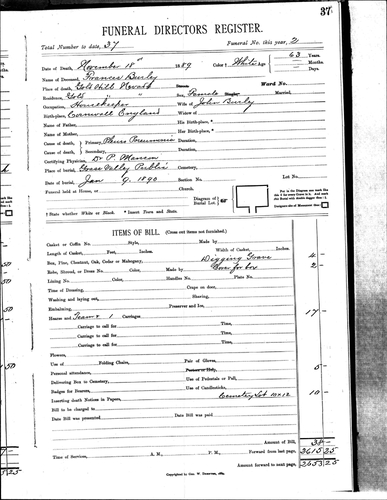 37
FUNERAL DIRECTORS REGISTER.
Total Number to date, 37 Funeral No. this year, 2
Date of Death, November 18" 1889 Color † White Age 63 Years. Months. Days.
Name of Deceased, Frances Burley
Place of death, Gold Hill Nevada Street, Ward No.
Residence, Gold " Sex, Female Single Married,
Occupation, Housekeeper Wife of John Burley
Birth-place, Cornwell England Widow of
Name of Father, His Birth-place, *
Name of Mother, Her Birth-place, *
Cause of death, Primary, Pleuro Pneumonia Duration,
Cause of death, Secondary, Duration,
Certifying Physician, Dr P. Manson
Place of burial, Grass Valley Public Cemetery,
Date of burial, Jan 9. 1890 Section No. Lot No.
Funeral held at Home, at Church.
Diagram of Burial Lot.
† State whether White or Black. * Insert Town and State.
ITEMS OF BILL. (Cross out items not furnished.)
Casket or Coffin No. Style, Made by
Length of Casket, Feet, Inches. Width of Casket, Inches.
Box, Pine, Chestnut, Oak, Cedar or Mahogany, Digging Grave 4 -
Robe, Shroud, or Dress No. Color, Made by Box for box 2 -
Lining No. Color, Handles No. Plate No.
Time of Directing, Crape on door,
Washing and laying out, Shaving,
Embalming, Preserver and Ice,
Hearse and Team & 1 Carriages 17 -
Carriage to call for Time,
Carriage to call for Time,
Carriage to call for Time,
Carriage to call for Time,
Flowers,
Use of Folding Chairs, Pair of Gloves,
Personal attendance, 5 -
Delivering Box to Cemetery, Use of Pedestals or Pall,
Badges for Bearers, Use of Candlesticks,
Inserting death Notices in Papers, Cemetery Lot 10x12 10 -
Bill to be charged to
Date Bill was presented Date Bill was paid
Amount of Bill, 38 -
Forward from last page, 2615 25
Time of Services, A. M., P. M. Amount forward to next page, 2653 25